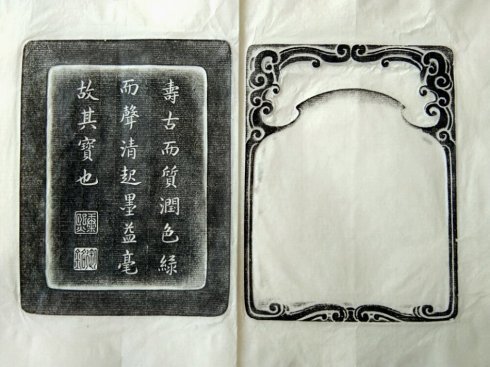 壽古而質潤色綠
而聲清起墨益毫
故其寶也
康熙
御銘